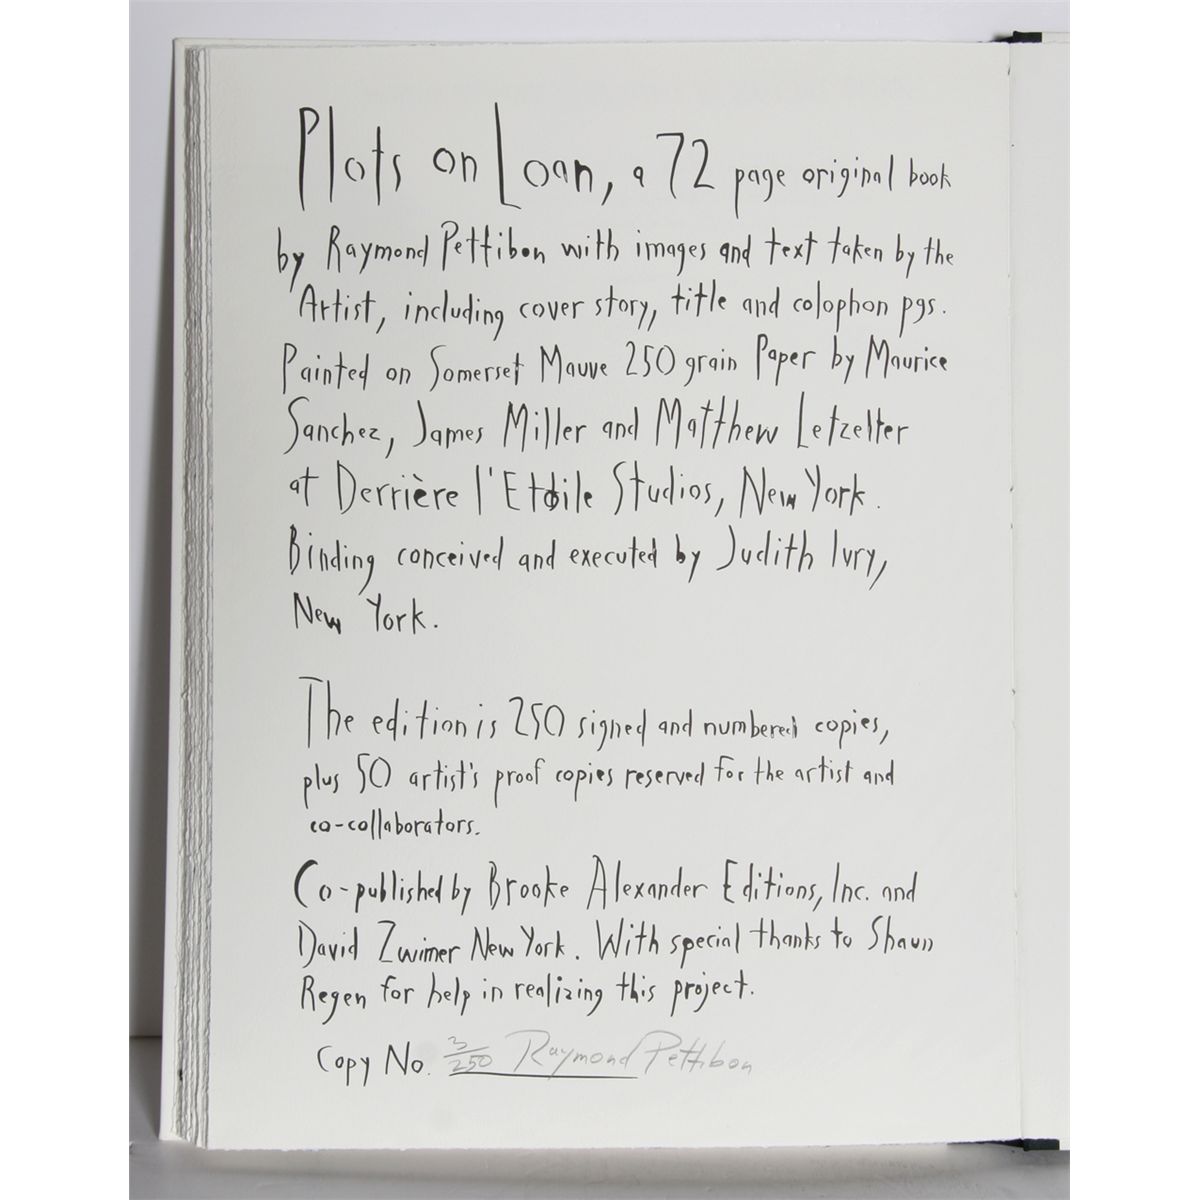 Plots on Loan, a 72 page original book
by Raymond Pettibon with images and text taken by the
Artist, including cover story, title and colophon pgs.
Painted on Somerset Mauve 250 grain Paper by Maurice
Sanchez, James Miller and Matthew Letzelter
at Derrière l'Etoile Studios, New York.
Binding conceived and executed by Judith Ivry,
New York.
The edition is 250 signed and numbered copies,
plus 50 artist's proof copies reserved for the artist and
co-collaborators.
Co-published by Brooke Alexander Editions, Inc. and
David Zwirner New York. With special thanks to Shaun
Regen for help in realizing this project.
Copy No. 3/250 Raymond Pettibon